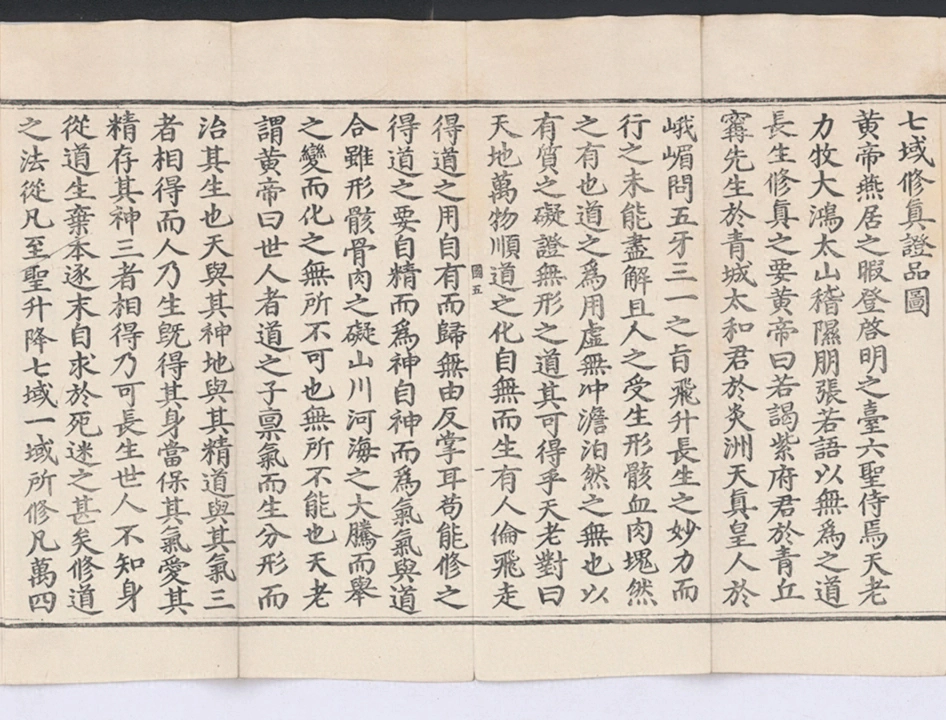 七域修真證品圖
黃帝燕居之暇登啓明之臺六聖侍焉天老
力牧大鴻太山稽隰朋張若語以無爲之道
長生修真之要黃帝曰若謁紫府君於青丘
寗先生於青城太和君於炎洲天真皇人於
峨嵋問五牙三一之旨飛升長生之妙力而
行之未能盡解且人之受生形骸血肉塊然
之有也道之爲用虛無冲澹泊然之無也以
有質之礙證無形之道其可得乎天老對曰
天地萬物順道之化自無而生有人倫飛走
國五
一
得道之用自有而歸無由反掌耳苟能修之
得道之要自精而爲神自神而爲氣氣與道
合雖形骸骨肉之礙山川河海之大騰而舉
之變而化之無所不可也無所不能也天老
謂黃帝曰世人者道之子禀氣而生分形而
治其生也天與其神地與其精道與其氣三
者相得而人乃生旣得其身當保其氣愛其
精存其神三者相得乃可長生世人不知身
從道生棄本逐末自求於死迷之甚矣修道
之法從凡至聖升降七域一域所修凡萬四